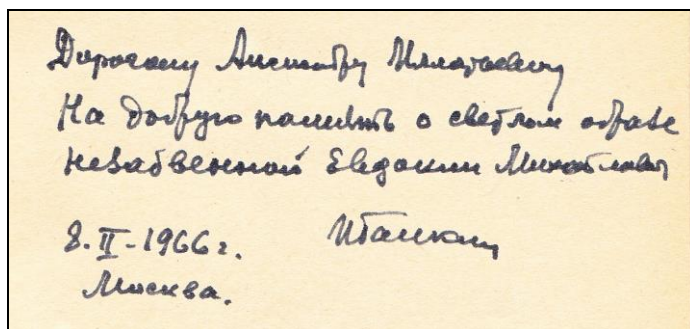 Дорогому Александру Игнатьевичу
На добрую память о светлом образе
незабвенной Евдокии Михайловны
8. II - 1966 г.
Москва.